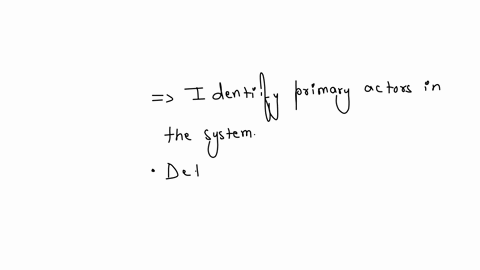 => Identify primary actors in
the system.
• Det